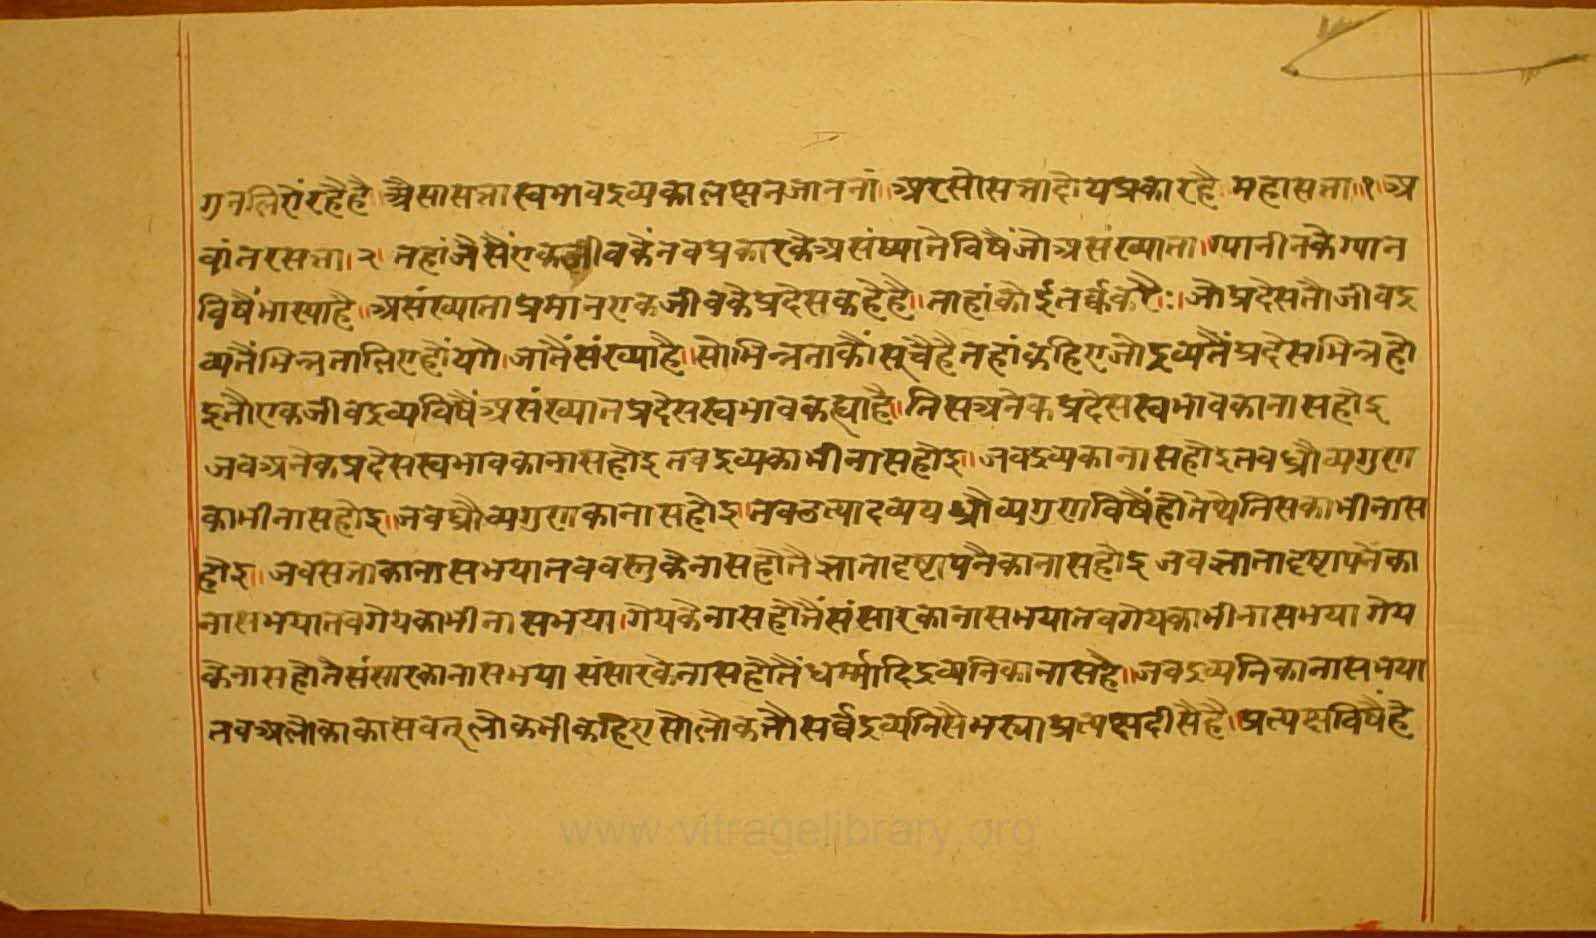 गुनलिएंरहैहै ॥ अैसासत्तास्वभावद्रव्यकालक्षनजाननां ॥ अरसोसत्तादोयप्रकारहै महासत्ता ॥ १ ॥ अ
वांतरसत्ता । २ । तहांजैसैंएकजीवकेंनवप्रकारकेअसंष्यातेविषैंजोअसंख्याता । ग्यानीनकेग्यान
विषैंभास्याहै ॥ असंख्याताप्रमानएकजीवकेप्रदेसकहेहै ॥ ताहांकोईतर्क्ककरैः । जोप्रदेसतौजीवद्र
व्यतैंभिन्नतालिएहौंयगे । जातैंसंख्याहै ॥ सोभिन्नताकौंसूचैहैतहांकहिएजोद्रव्यतैंप्रदेसभिन्नहो
इतौएकजीवद्रव्यविषैंअसंख्यातप्रदेसस्वभावकह्याहै ॥ तिसअनेकप्रदेसस्वभावकानासहोइ
जवअनेकप्रदेसस्वभावकानासहोइतवद्रव्यकाभीनासहोइ ॥ जवद्रव्यकानासहोइतवध्रौव्यगुण
काभीनासहोइ ॥ जवध्रौव्यगुणकानासहोइ ॥ तवउत्पादव्ययध्रौव्यगुणविषैंहौतेथेतिसकाभीनास
होइ ॥ जवसत्ताकानासभयातववस्तुकैनासहौतैज्ञातादृष्टापनैकानासहोइ जवज्ञातादृष्टापनेका
नासभयातवगेयकाभीनासभया । गेयकेनासहौतैंसंसारकानासभयातवगेयकाभीनासभया गेय
केनासहौतैसंसारकानासभया संसारकेनासहौतैंधर्म्मादिद्रव्यनिकानासहै ॥ जवद्रव्यनिकानासभया
तवअलोकाकासवत्लोकभीकहिएसोलोकतौसर्वद्रव्यनिसैभरयाप्रत्यक्षदीसैहै ॥ प्रत्यक्षविषैंहै
www.vitragelibrary.org